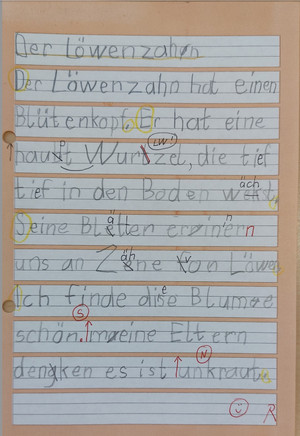 Der Löwenzahn
Der Löwenzahn hat einen
Blütenkopf. Er hat eine
haupt Wurzel, die tief
LW!
tief in den Boden wächst.
Seine Blätter erinnern
uns an Zähne von Löwen.
Ich finde die Blume
schön. meine Eltern
S
denken es ist unkraut.
N
R